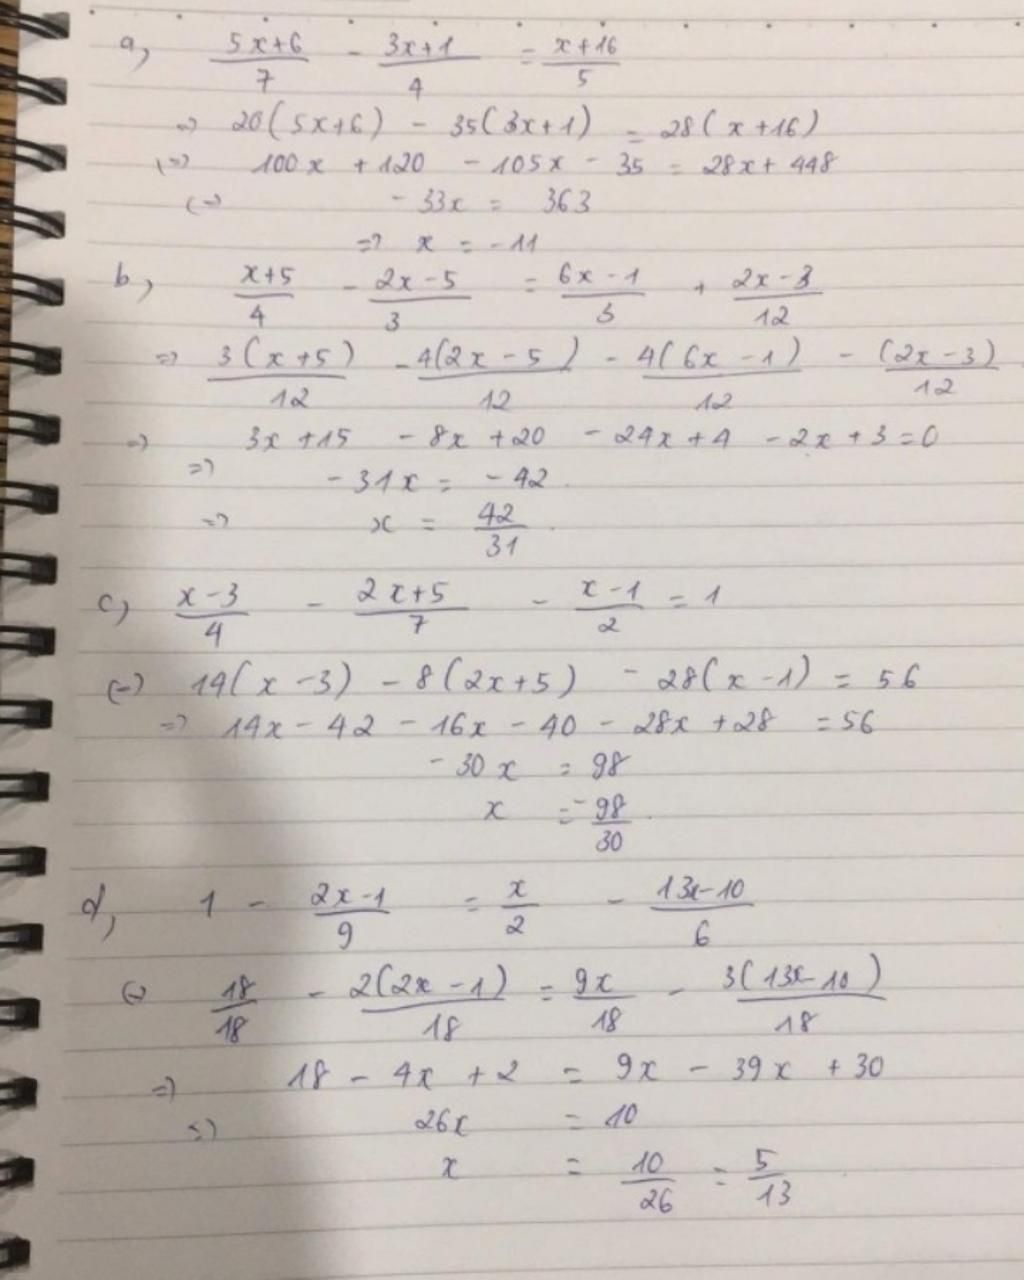 a, (5x+6)/7 - (3x+1)/4 = (x+16)/5
=> 20(5x+6) - 35(3x+1) = 28(x+16)
(=) 100x + 120 - 105x - 35 = 28x + 448
(=) - 33x = 363
=> x = - 11
b, (x+5)/4 - (2x-5)/3 = (6x-1)/3 + (2x-3)/12
=> 3(x+5)/12 - 4(2x-5)/12 - 4(6x-1)/12 - (2x-3)/12
=> 3x + 15 - 8x + 20 - 24x + 4 - 2x + 3 = 0
=> - 31x = - 42
=> x = 42/31
c, (x-3)/4 - (2x+5)/7 - (x-1)/2 = 1
(=) 14(x-3) - 8(2x+5) - 28(x-1) = 56
=> 14x - 42 - 16x - 40 - 28x + 28 = 56
- 30x = 98
x = -98/30
d, 1 - (2x-1)/9 = x/2 - (13x-10)/6
(=) 18/18 - 2(2x-1)/18 = 9x/18 - 3(13x-10)/18
=> 18 - 4x + 2 = 9x - 39x + 30
=> 26x = 10
x = 10/26 = 5/13